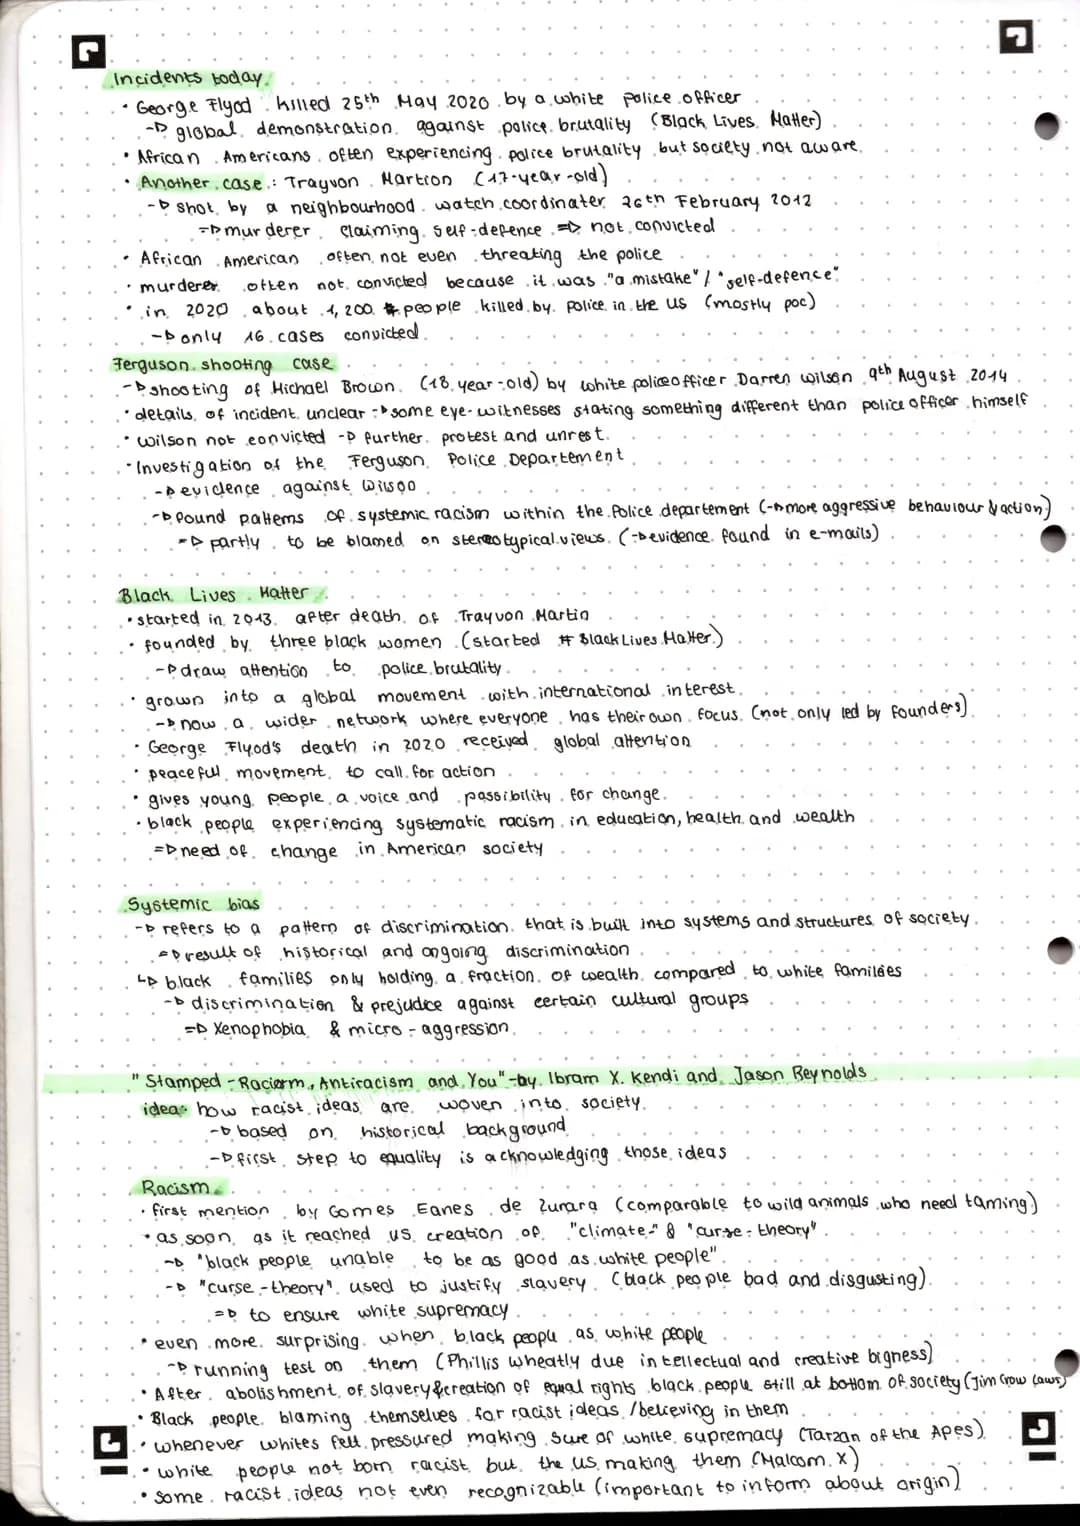 Incidents today:
• George Flyod killed 25th May 2020 by a white police officer
-▷ global demonstration against police brutality (Black Lives Matter)
• African Americans often experiencing police brutality but society not aware
• Another case: Trayvon Martion (17-year-old)
-▷ shot by a neighbourhood watch coordinater 26th February 2012
=▷ murderer claiming self-defence =▷ not convicted
• African American often not even threating the police
• murderer often not convicted because it was "a mistake" / "self-defence"
• in 2020 about 1,200 people killed by police in the US (mostly poc)
-▷ only 16 cases convicted
Ferguson shooting case
-▷ shooting of Michael Brown (18 year-old) by white police officer Darren Wilson 9th August 2014
• details of incident unclear -▷ some eye-witnesses stating something different than police officer himself
• Wilson not convicted -▷ further protest and unrest
• Investigation of the Ferguson Police Departement
-▷ evidence against Wilson
-▷ found pattems of systemic racism within the Police departement (-▷ more aggressive behaviour & action)
=▷ partly to be blamed on stereotypical views (-▷ evidence found in e-mails)
Black Lives Matter
• started in 2013 after death of Trayvon Martin
• founded by three black women (started # BlackLivesMatter)
-▷ draw attention to police brutality
• grown into a global movement with international interest
-▷ now a wider network where everyone has their own focus (not only led by founders)
• George Flyod's death in 2020 received global attention
• peaceful movement to call for action
• gives young people a voice and possibility for change
• black people experiencing systematic racism in education, health and wealth
=▷ need of change in American society
Systemic bias
-▷ refers to a pattern of discrimination that is built into systems and structures of society
=▷ result of historical and ongoing discrimination
↳▷ black families only holding a fraction of wealth compared to white families
-▷ discrimination & prejudice against certain cultural groups
=▷ Xenophobia & micro-aggression
"Stamped - Racism, Antiracism and You" - by Ibram X. Kendi and Jason Reynolds
idea: how racist ideas are woven into society
-▷ based on historical background
-▷ first step to equality is acknowledging those ideas
Racism
• first mention by Gomes Eanes de Zurara (comparable to wild animals who need taming)
• as soon as it reached US creation of "climate-" & "curse-theory"
-▷ "black people unable to be as good as white people"
-▷ "curse-theory" used to justify slavery (black people bad and disgusting)
=▷ to ensure white supremacy
• even more surprising when black people as white people
-▷ running test on them (Phillis Wheatly due intellectual and creative bigness)
• After abolishment of slavery & creation of equal rights black people still at bottom of society (Jim Crow laws)
• Black people blaming themselves for racist ideas / believing in them
• whenever whites felt pressured making sure of white supremacy (Tarzan of the Apes)
• white people not born racist but the US making them (Malcom X)
• some racist ideas not even recognizable (important to inform about origin)